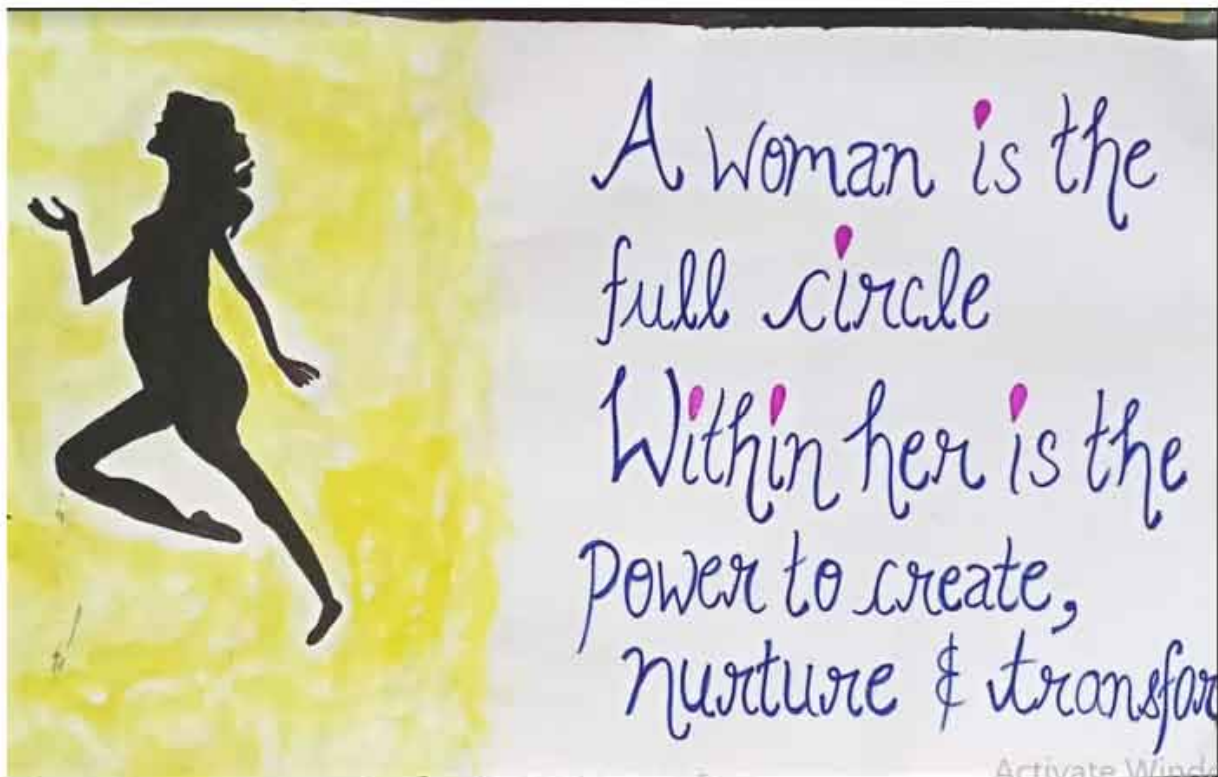 A woman is the
full circle
Within her is the
power to create,
nurture & transfor
Activate Windo